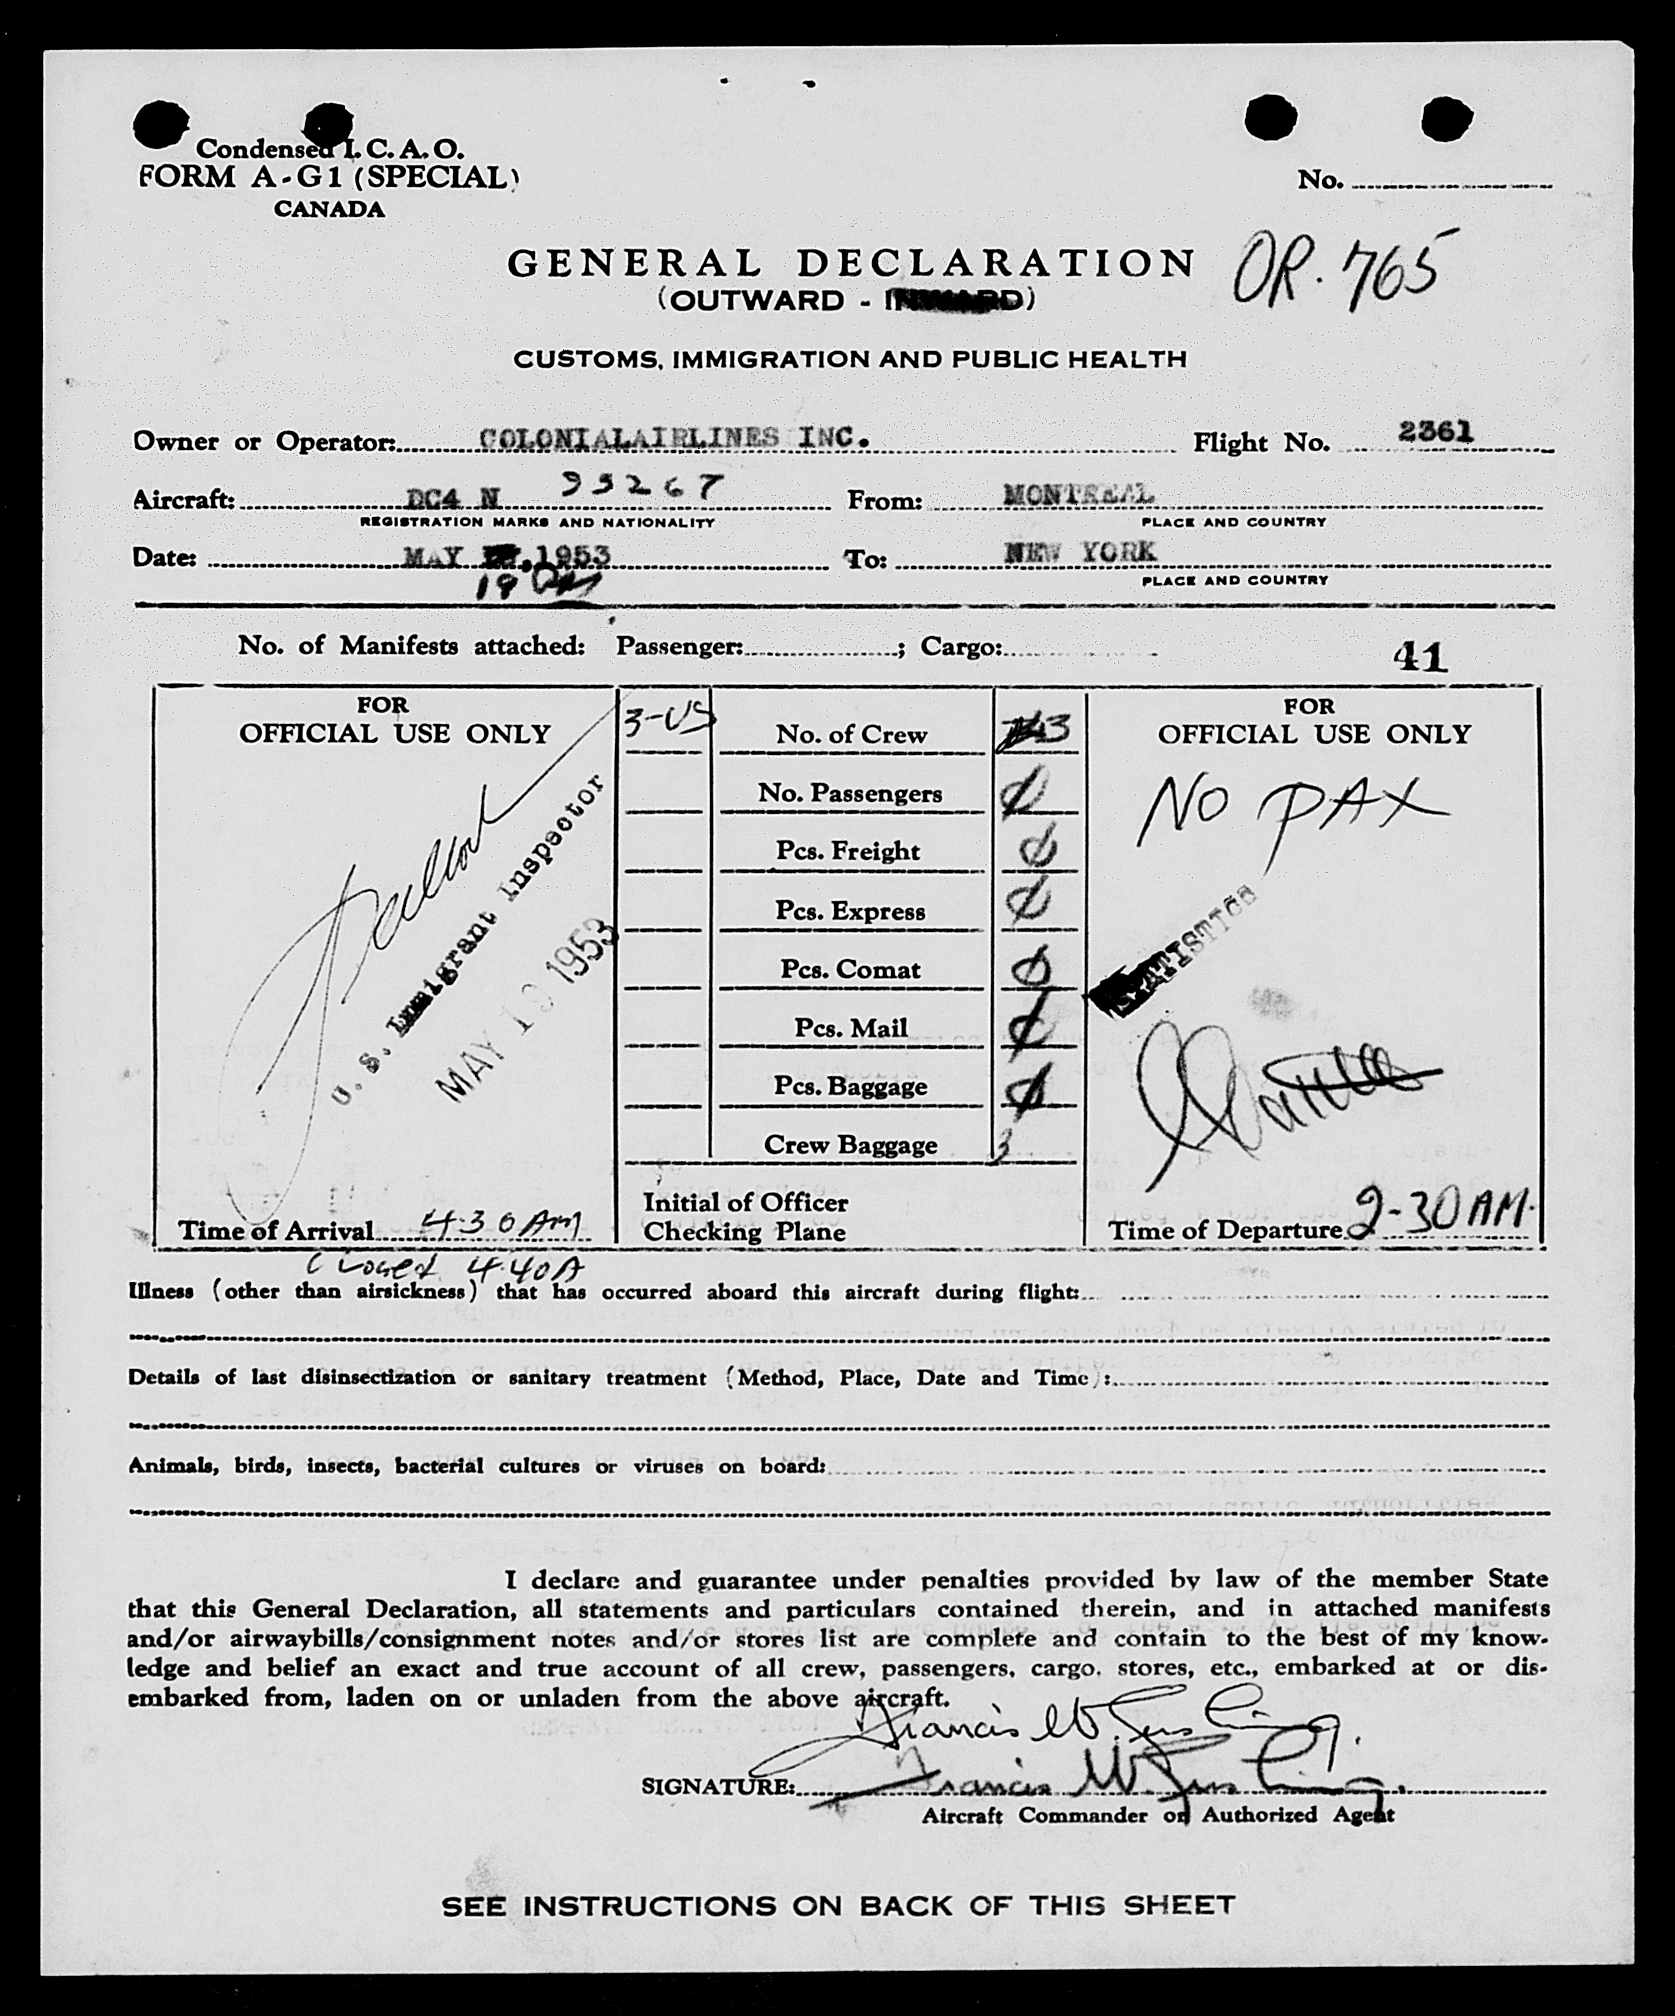 Condensed I. C. A. O.
FORM A-G1 (SPECIAL)
CANADA
No.
GENERAL DECLARATION
OR. 765
(OUTWARD - INWARD)
CUSTOMS, IMMIGRATION AND PUBLIC HEALTH
Owner or Operator: COLONIALAIRLINES INC. Flight No. 2361
Aircraft: DC4 N 93267 From: MONTREAL
REGISTRATION MARKS AND NATIONALITY PLACE AND COUNTRY
Date: MAY ,1953 To: NEW YORK
19 PLACE AND COUNTRY
No. of Manifests attached: Passenger: ; Cargo: 41
FOR
OFFICIAL USE ONLY
U. S. Immigrant Inspector
MAY 19 1953
Time of Arrival 4:30 AM
Closed 4.40A
3-US No. of Crew 3
No. Passengers 0
Pcs. Freight 0
Pcs. Express 0
Pcs. Comat 0
Pcs. Mail 0
Pcs. Baggage 0
Crew Baggage 3
Initial of Officer
Checking Plane
FOR
OFFICIAL USE ONLY
NO PAX
STATISTICS
Time of Departure 2-30 AM.
Illness (other than airsickness) that has occurred aboard this aircraft during flight:
Details of last disinsectization or sanitary treatment (Method, Place, Date and Time):
Animals, birds, insects, bacterial cultures or viruses on board:
I declare and guarantee under penalties provided by law of the member State
that this General Declaration, all statements and particulars contained therein, and in attached manifests
and/or airwaybills/consignment notes and/or stores list are complete and contain to the best of my know-
ledge and belief an exact and true account of all crew, passengers, cargo, stores, etc., embarked at or dis-
embarked from, laden on or unladen from the above aircraft.
Francis W.
SIGNATURE: Francis W.
Aircraft Commander or Authorized Agent
SEE INSTRUCTIONS ON BACK OF THIS SHEET